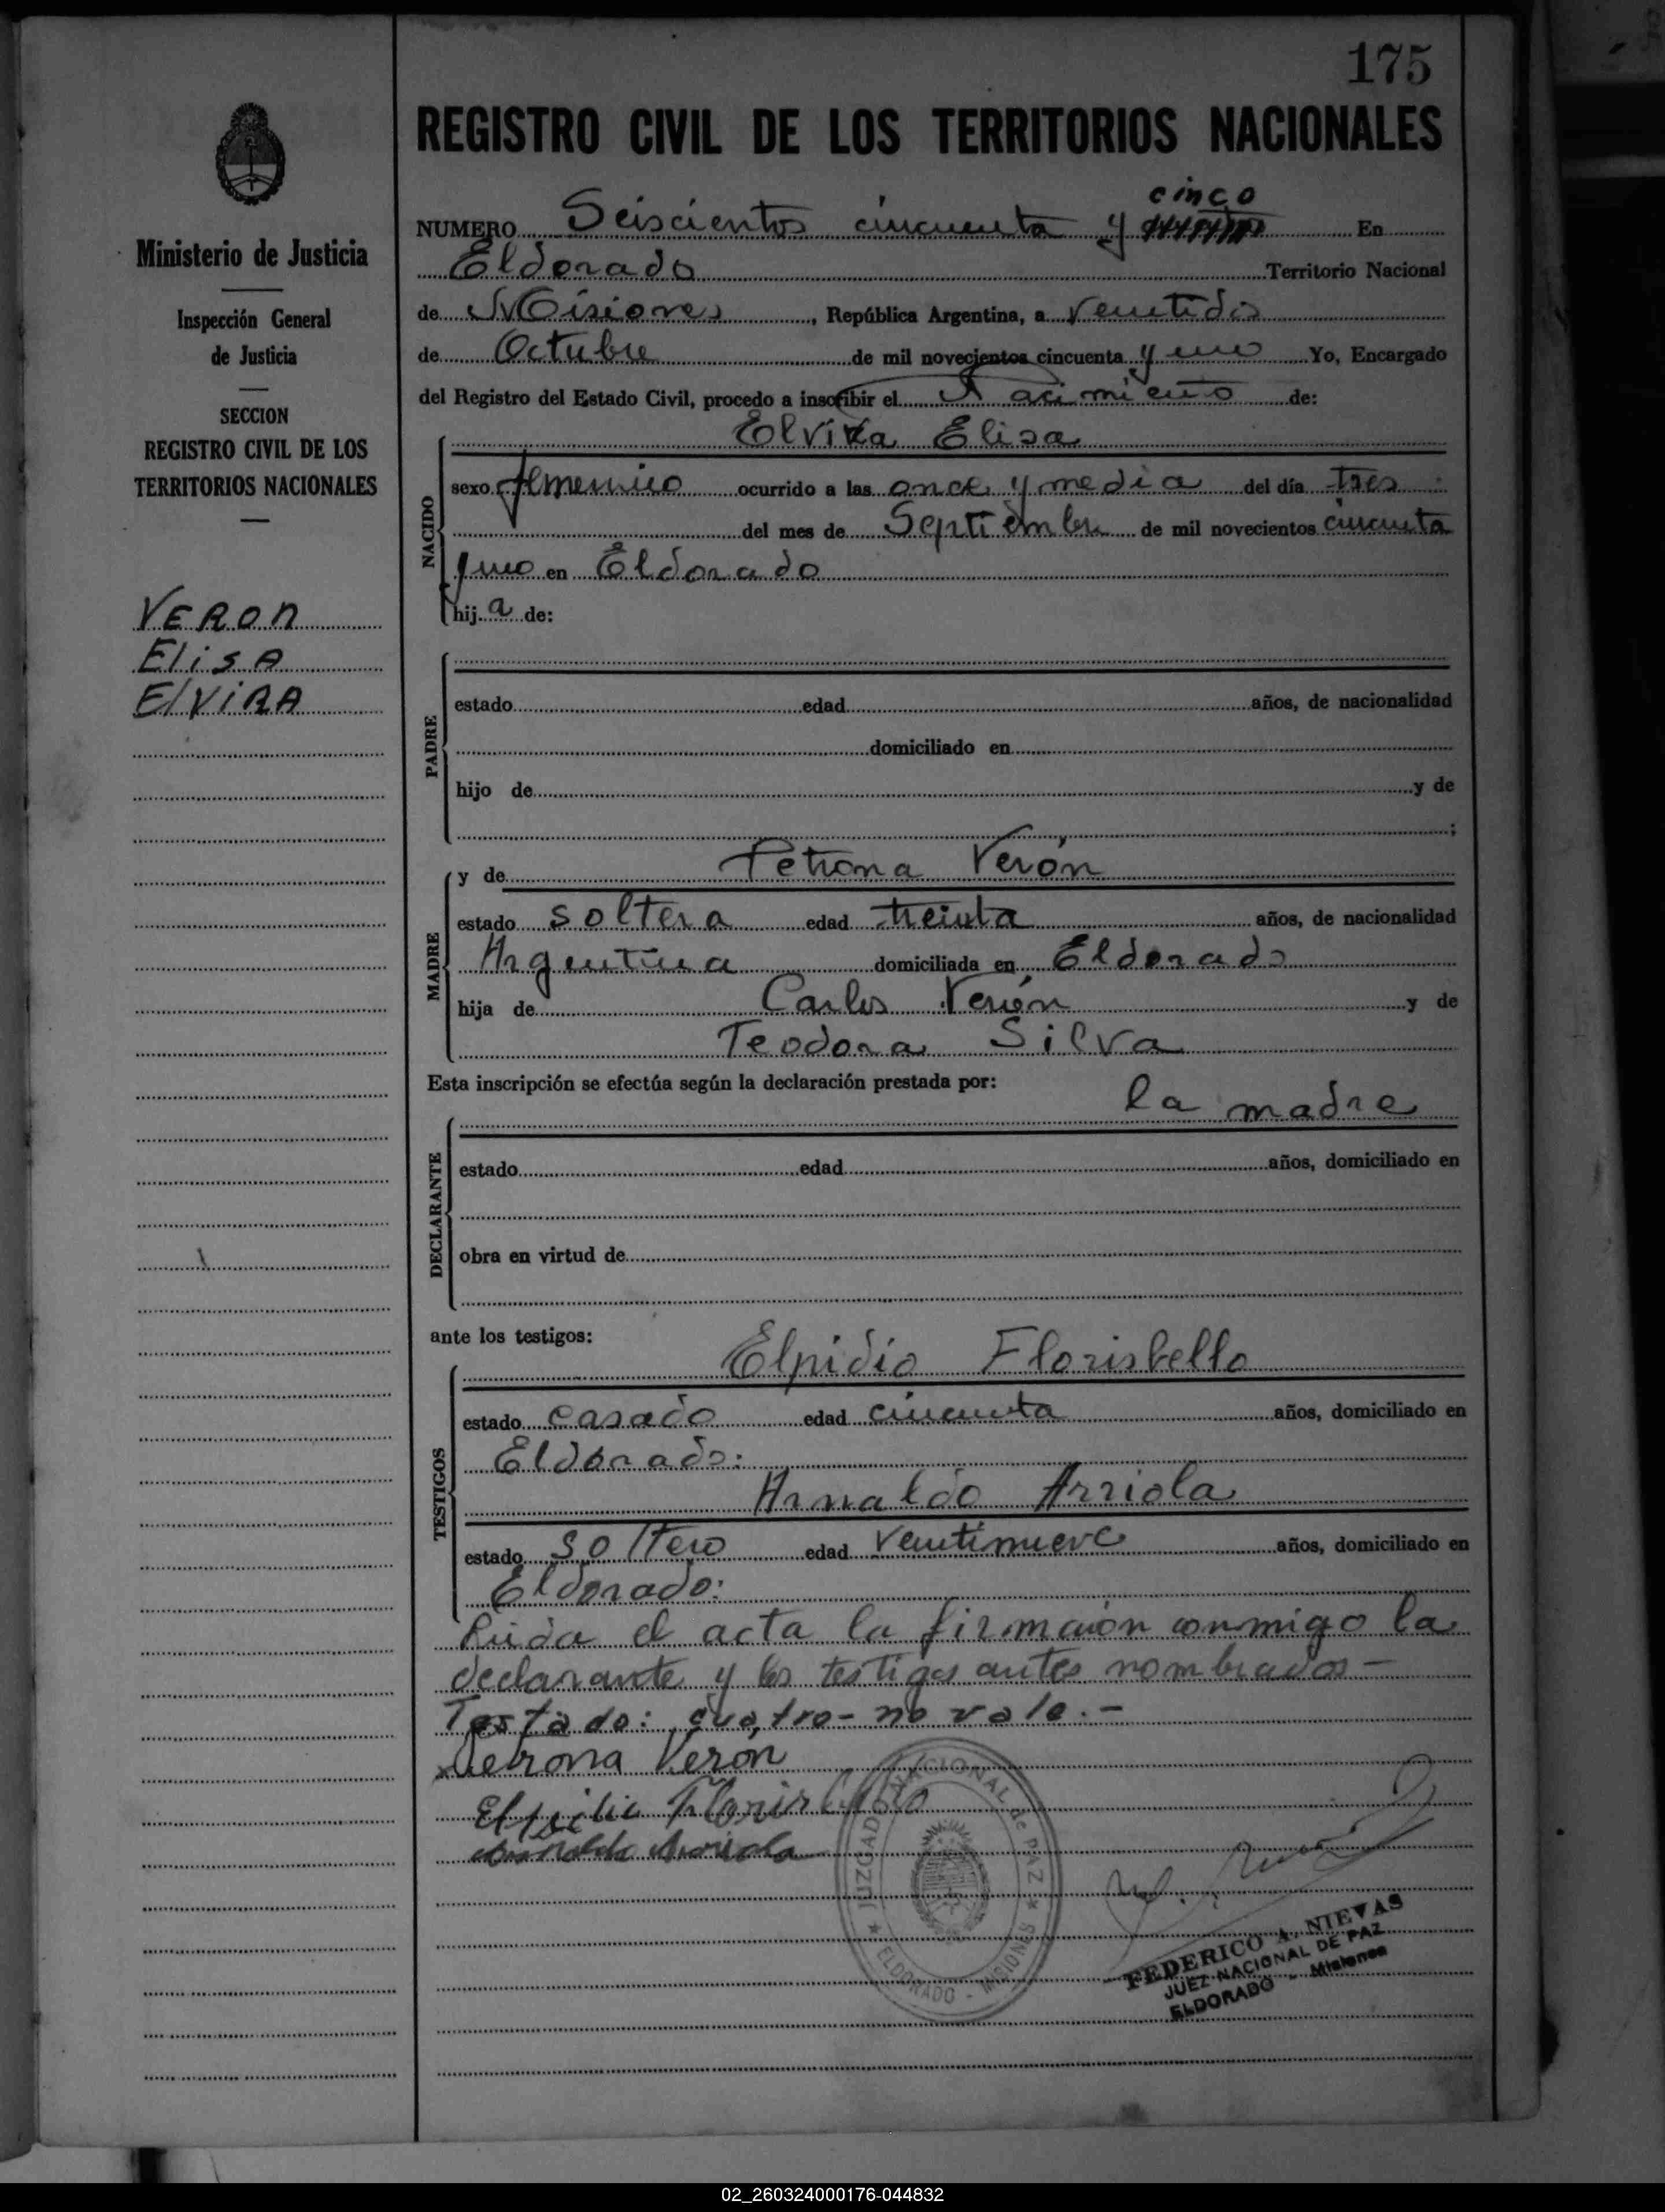 175
REGISTRO CIVIL DE LOS TERRITORIOS NACIONALES
Ministerio de Justicia
Inspección General
de Justicia
SECCION
REGISTRO CIVIL DE LOS
TERRITORIOS NACIONALES
VERON
ElisA
ElViRA
cinco
NUMERO Seiscientos cincuenta y En
Eldorado Territorio Nacional
de Misiones, República Argentina, a veintidos
de Octubre de mil novecientos cincuenta y uno Yo, Encargado
del Registro del Estado Civil, procedo a inscribir el Nacimiento de:
NACIDO
Elvira Elisa
sexo femenino ocurrido a las once y media del día tres
del mes de Septiembre de mil novecientos cincuenta
y uno en Eldorado
hija de:
PADRE
estado edad años, de nacionalidad
domiciliado en
hijo de y de
;
MADRE
y de Petrona Verón
estado soltera edad treinta años, de nacionalidad
Argentina domiciliada en Eldorado
hija de Carlos Verón y de
Teodora Silva
Esta inscripción se efectúa según la declaración prestada por:
la madre
DECLARANTE
estado edad años, domiciliado en
obra en virtud de
ante los testigos:
TESTIGOS
Elpidio Florisbello
estado casado edad cincuenta años, domiciliado en
Eldorado:
Arnaldo Arriola
estado soltero edad veintinueve años, domiciliado en
Eldorado:
Leida el acta la firmaron conmigo la
declarante y los testigos antes nombrados-
Testado: cuatro- no vale.-
Petrona Verón
Elpidio Florisbello
Arnaldo Arriola
JUZGADO NACIONAL de PAZ
ELDORADO - MISIONES
FEDERICO A. NIEVAS
JUEZ NACIONAL DE PAZ
ELDORADO - Misiones
02_260324000176-044832